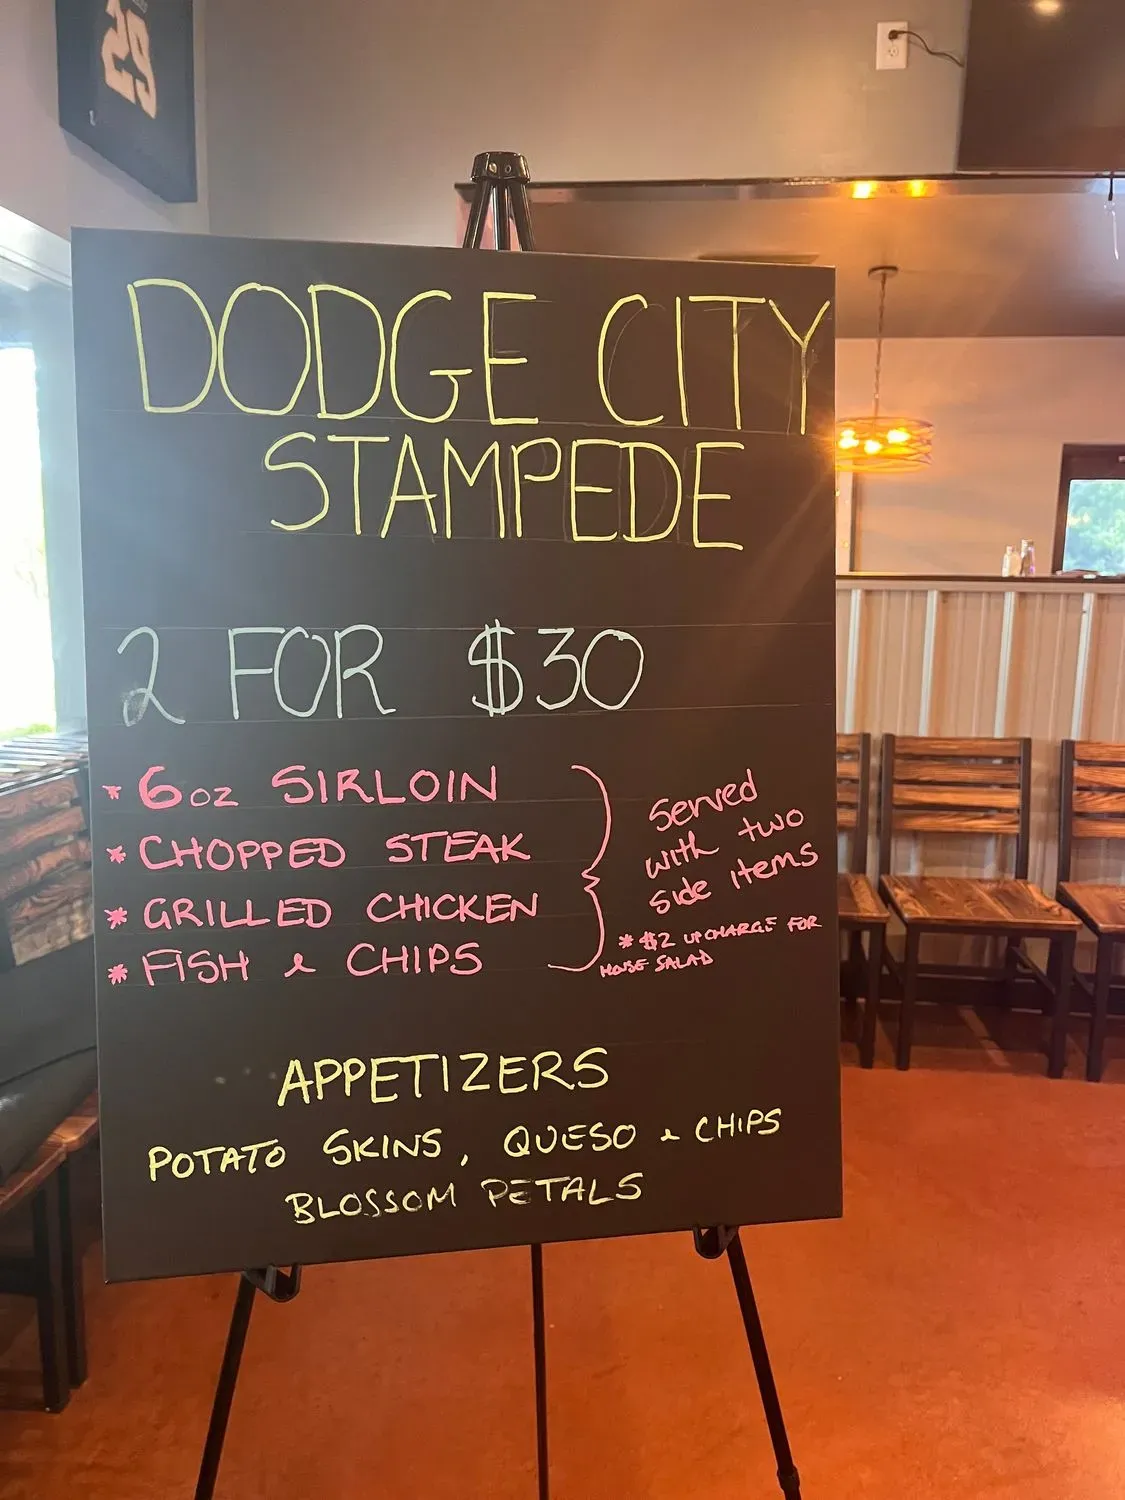 25
DODGE CITY
STAMPEDE
2 FOR $30
* 6oz SIRLOIN
* CHOPPED STEAK
* GRILLED CHICKEN
* FISH & CHIPS
Served
with two
side items
* $2 UPCHARGE FOR
HOUSE SALAD
APPETIZERS
POTATO SKINS, QUESO & CHIPS
BLOSSOM PETALS